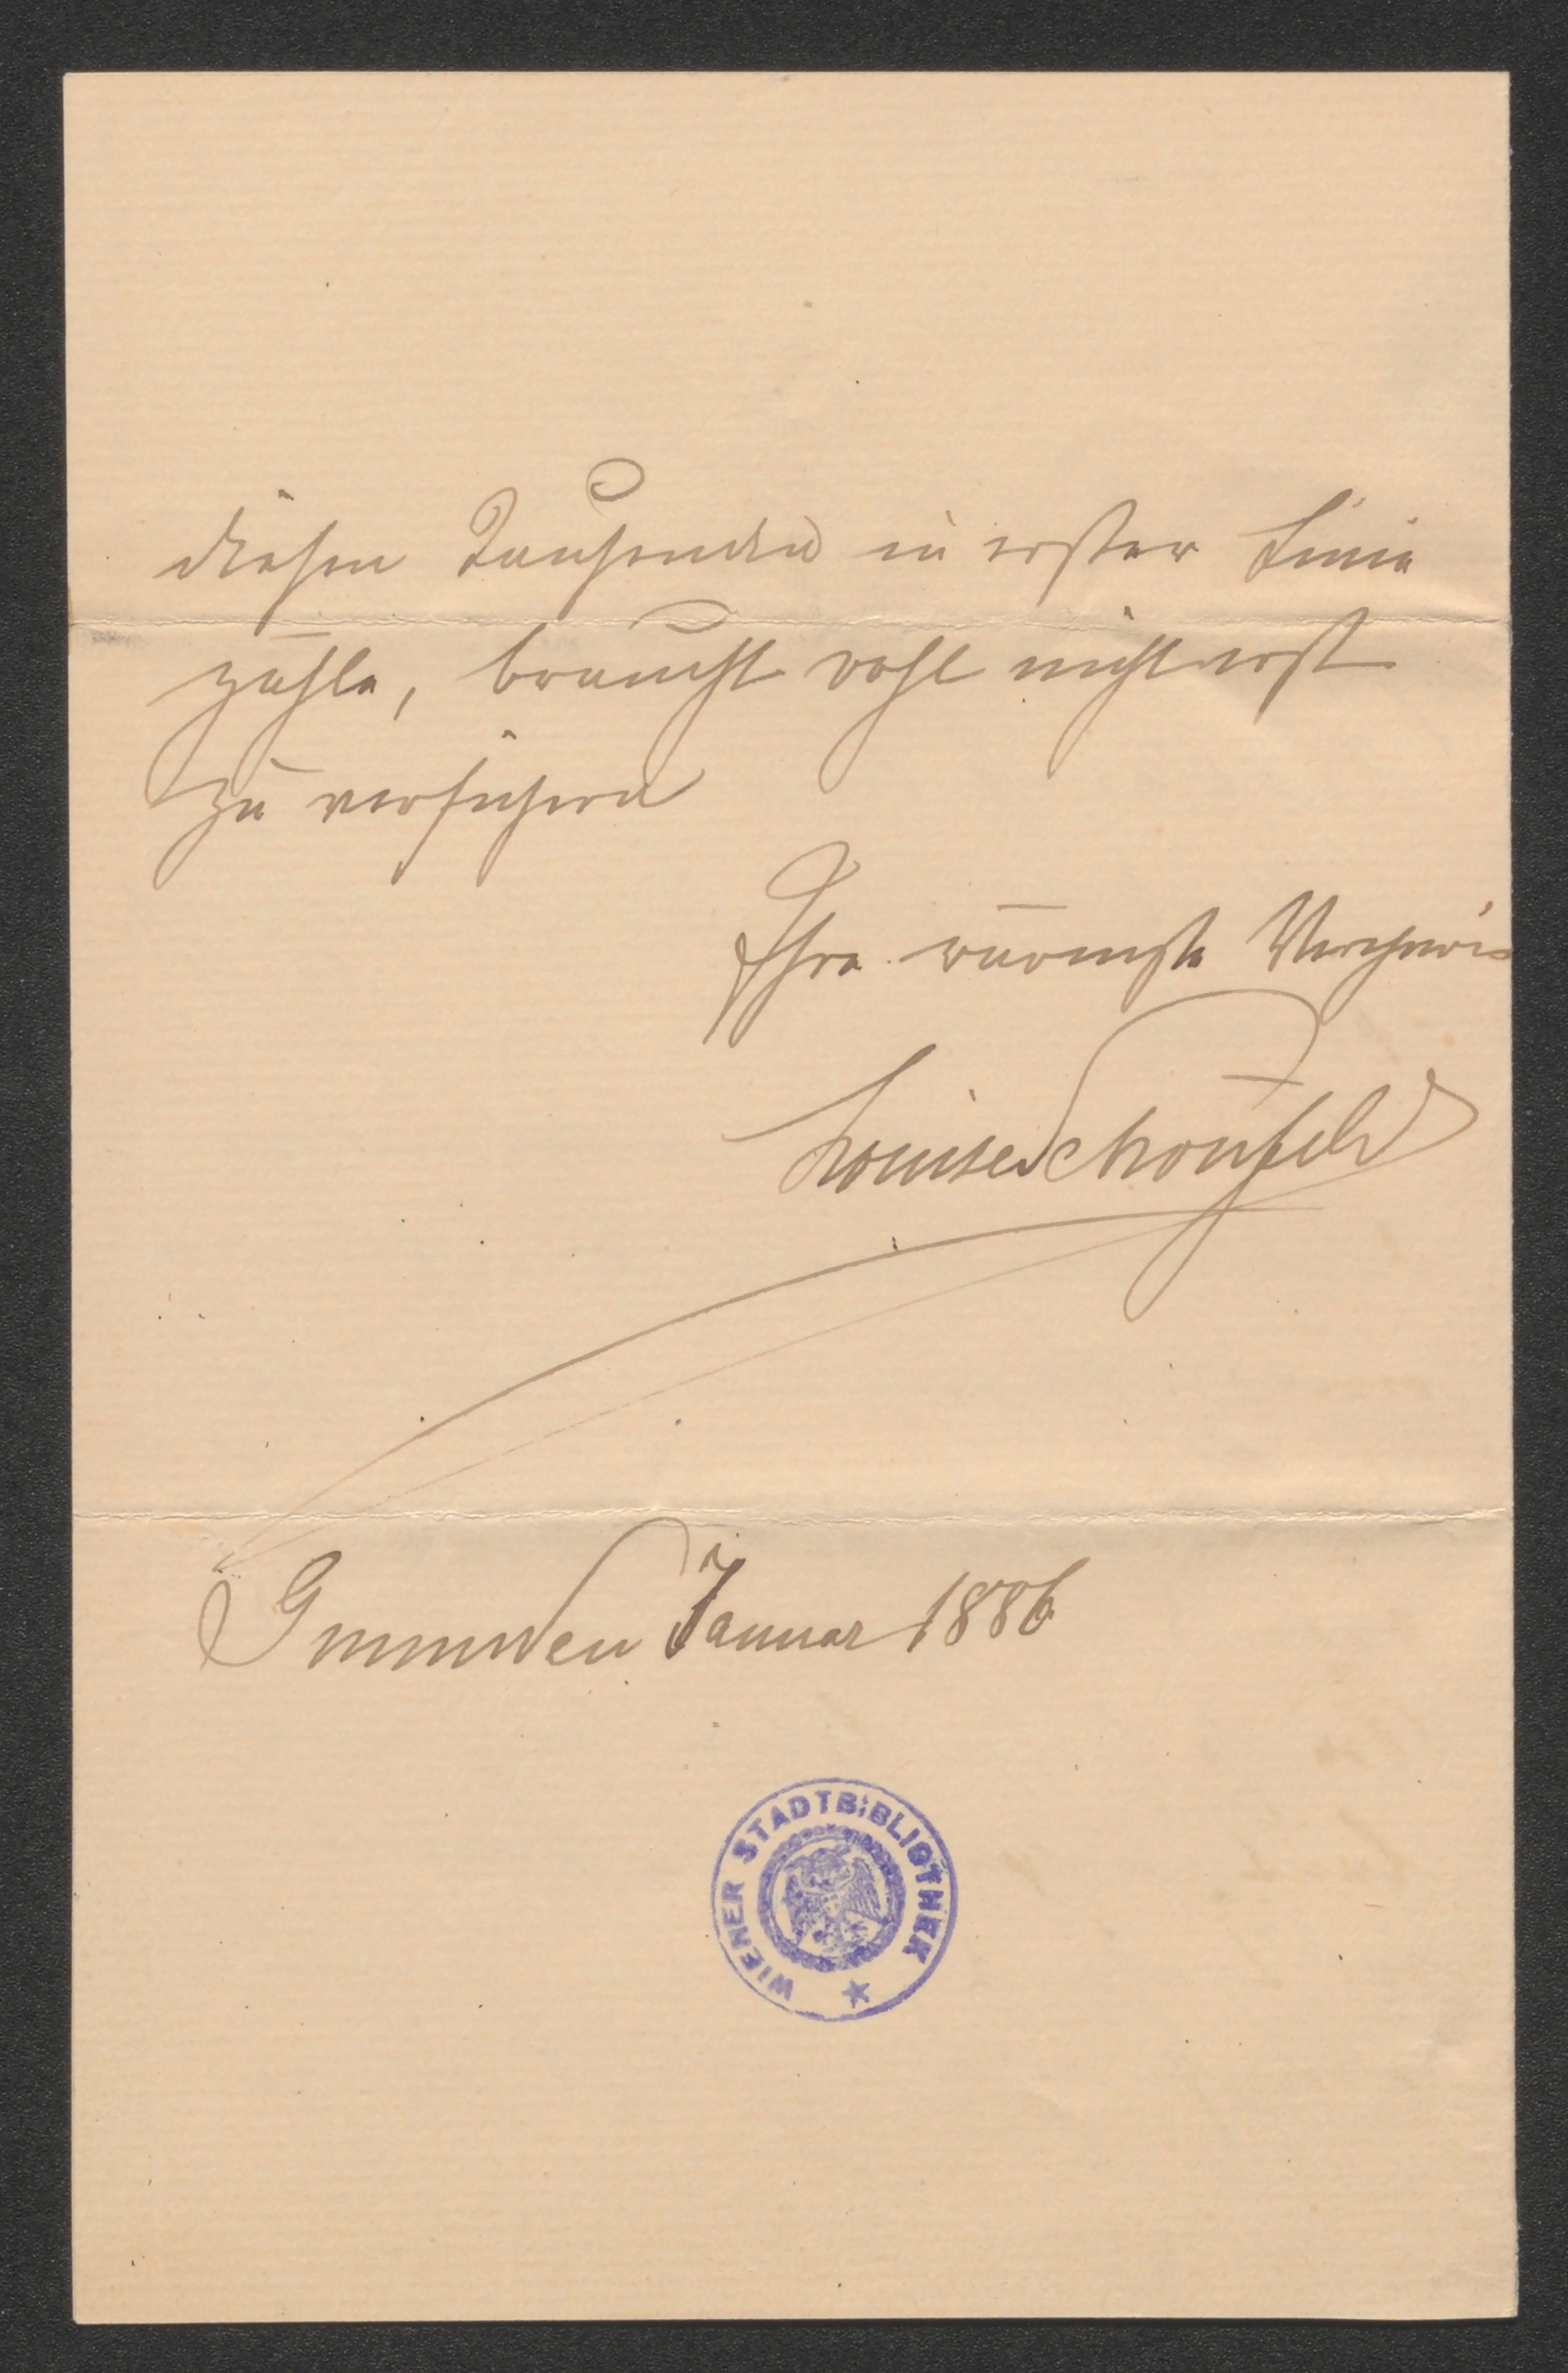 diesen Tausenden in erster Linie
zähle, braucht wohl nicht erst
zu versichern
Ihre wärmste Verehrerin
Louise Schönfeld
Gmunden Januar 1886
WIENER STADTBIBLIOTHEK